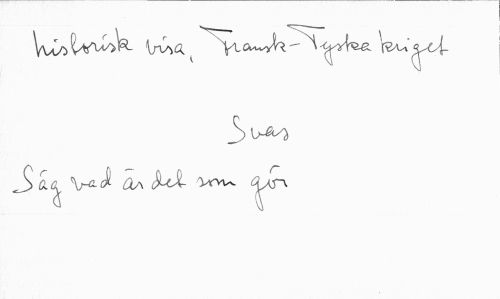 historisk visa, Fransk-Tyska kriget
Svas
Säg vad är det som gör